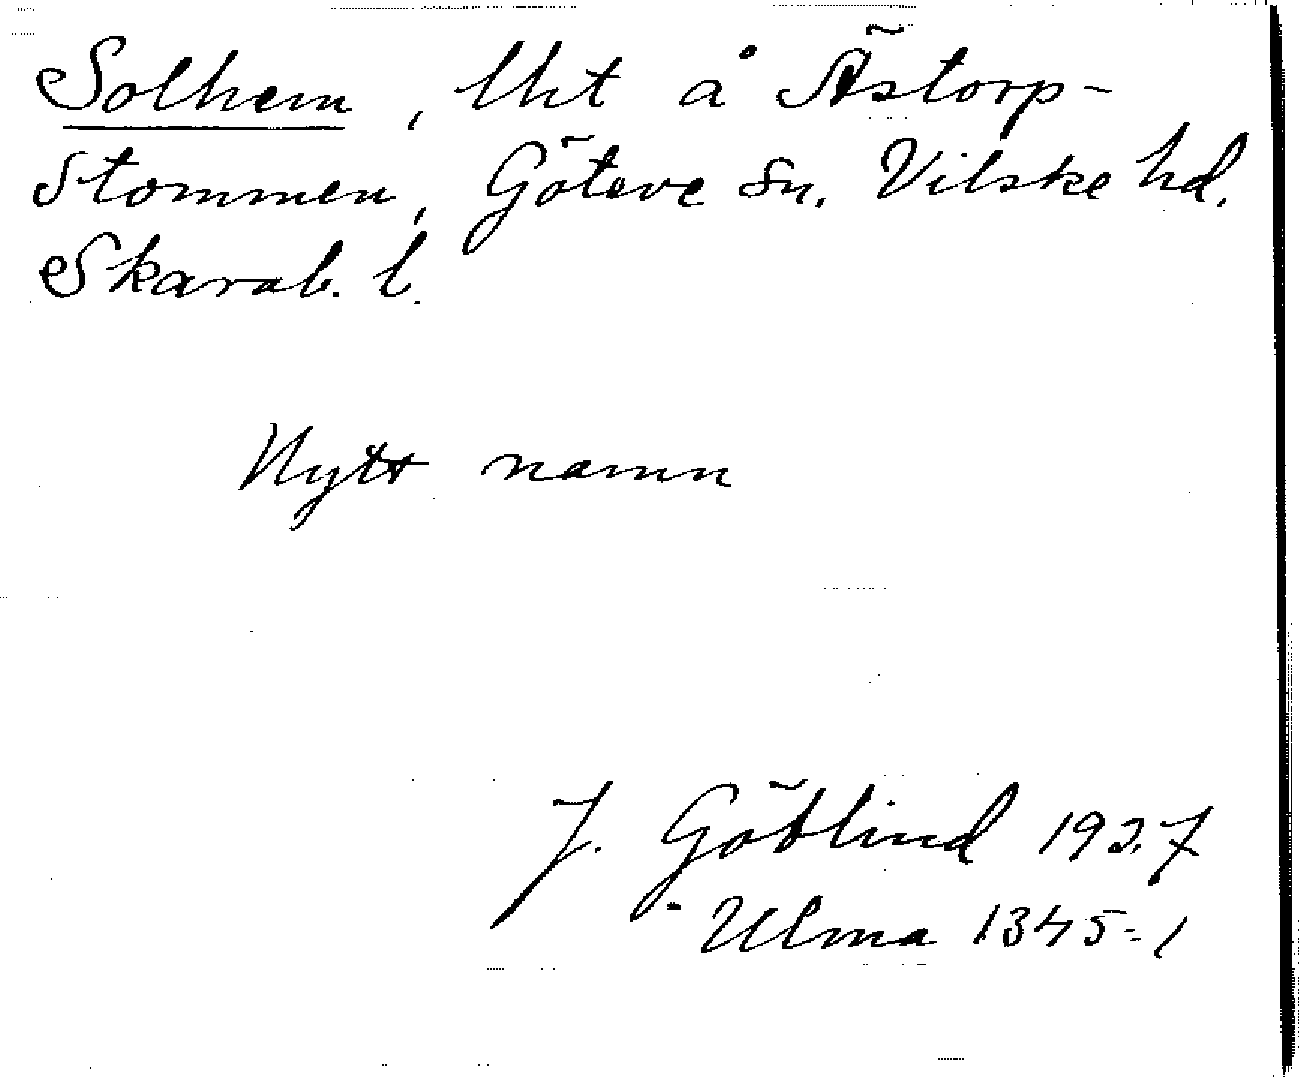 Solhem, lht å Ästorp-
Stommen, Göteve sn. Vilske hd.
Skarab. l.
Nytt namn
J. Götlind 1927
Ulma 1345:1